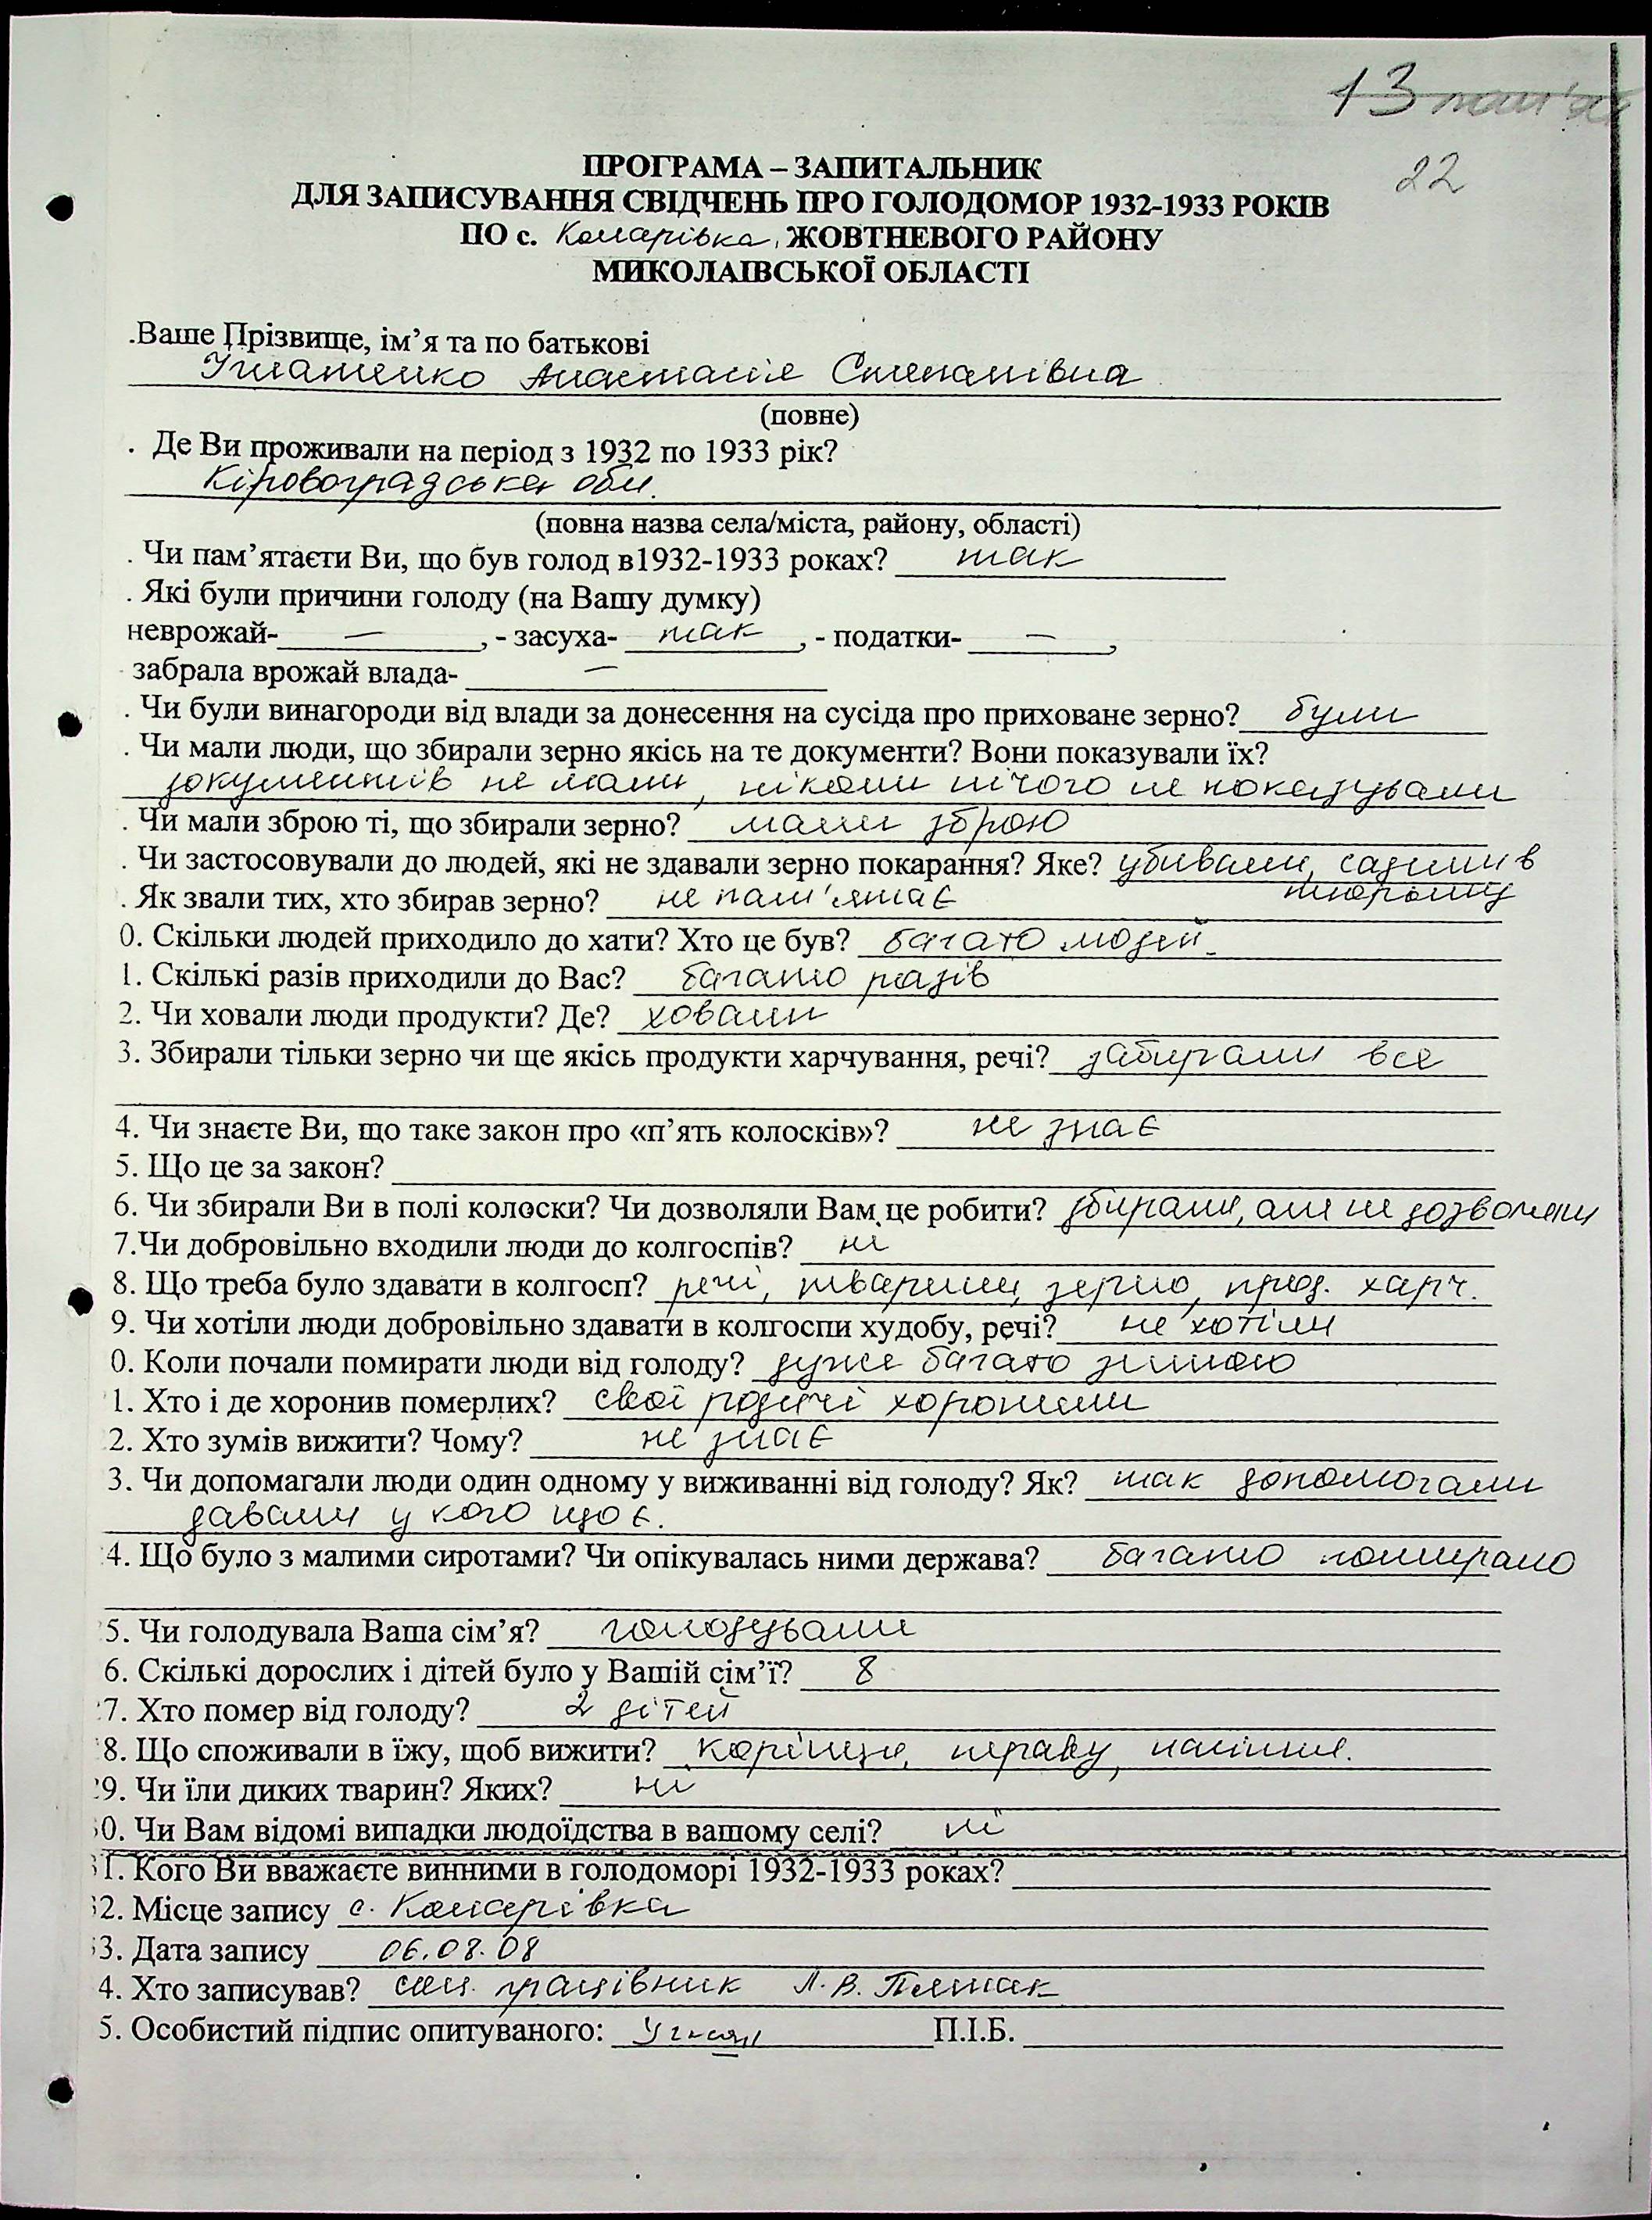 13 пам'ят
22
ПРОГРАМА – ЗАПИТАЛЬНИК
ДЛЯ ЗАПИСУВАННЯ СВІДЧЕНЬ ПРО ГОЛОДОМОР 1932-1933 РОКІВ
ПО с. Комарівка, ЖОВТНЕВОГО РАЙОНУ
МИКОЛАЇВСЬКОЇ ОБЛАСТІ
.Ваше Прізвище, ім'я та по батькові
Ігнатенко Анастасія Степанівна
(повне)
. Де Ви проживали на період з 1932 по 1933 рік?
Кіровоградська обл.
(повна назва села/міста, району, області)
. Чи пам'ятаєти Ви, що був голод в1932-1933 роках? так
. Які були причини голоду (на Вашу думку)
неврожай- — , - засуха- так , - податки- — ,
забрала врожай влада- —
. Чи були винагороди від влади за донесення на сусіда про приховане зерно? були
. Чи мали люди, що збирали зерно якісь на те документи? Вони показували їх?
документів не мали, ніколи нічого не показували
. Чи мали зброю ті, що збирали зерно? мали зброю
. Чи застосовували до людей, які не здавали зерно покарання? Яке? убивали, садили в
тюрьму
. Як звали тих, хто збирав зерно? не пам'ятає
0. Скільки людей приходило до хати? Хто це був? багато людей
1. Скількі разів приходили до Вас? багато разів
2. Чи ховали люди продукти? Де? ховали
3. Збирали тільки зерно чи ще якісь продукти харчування, речі? забирали все
4. Чи знаєте Ви, що таке закон про «п'ять колосків»? не знає
5. Що це за закон?
6. Чи збирали Ви в полі колоски? Чи дозволяли Вам це робити? збирали, але не дозволяли
7.Чи добровільно входили люди до колгоспів? ні
8. Що треба було здавати в колгосп? речі, тварини, зерно, прод. харч.
9. Чи хотіли люди добровільно здавати в колгоспи худобу, речі? не хотіли
0. Коли почали помирати люди від голоду? дуже багато зимою
1. Хто і де хоронив померлих? свої родичі хоронили
2. Хто зумів вижити? Чому? не знає
3. Чи допомагали люди один одному у виживанні від голоду? Як? так допомогали
давали у кого що є.
4. Що було з малими сиротами? Чи опікувалась ними держава? багато помирало
5. Чи голодувала Ваша сім'я? голодували
6. Скількі дорослих і дітей було у Вашій сім'ї? 8
7. Хто помер від голоду? 2 дітей
8. Що споживали в їжу, щоб вижити? корінця, траву, насіння.
9. Чи їли диких тварин? Яких? ні
0. Чи Вам відомі випадки людоїдства в вашому селі? ні
1. Кого Ви вважаєте винними в голодоморі 1932-1933 роках?
2. Місце запису с. Комарівка
3. Дата запису 06.08.08
4. Хто записував? соц. працівник Л.В.
5. Особистий підпис опитуваного: П.І.Б.